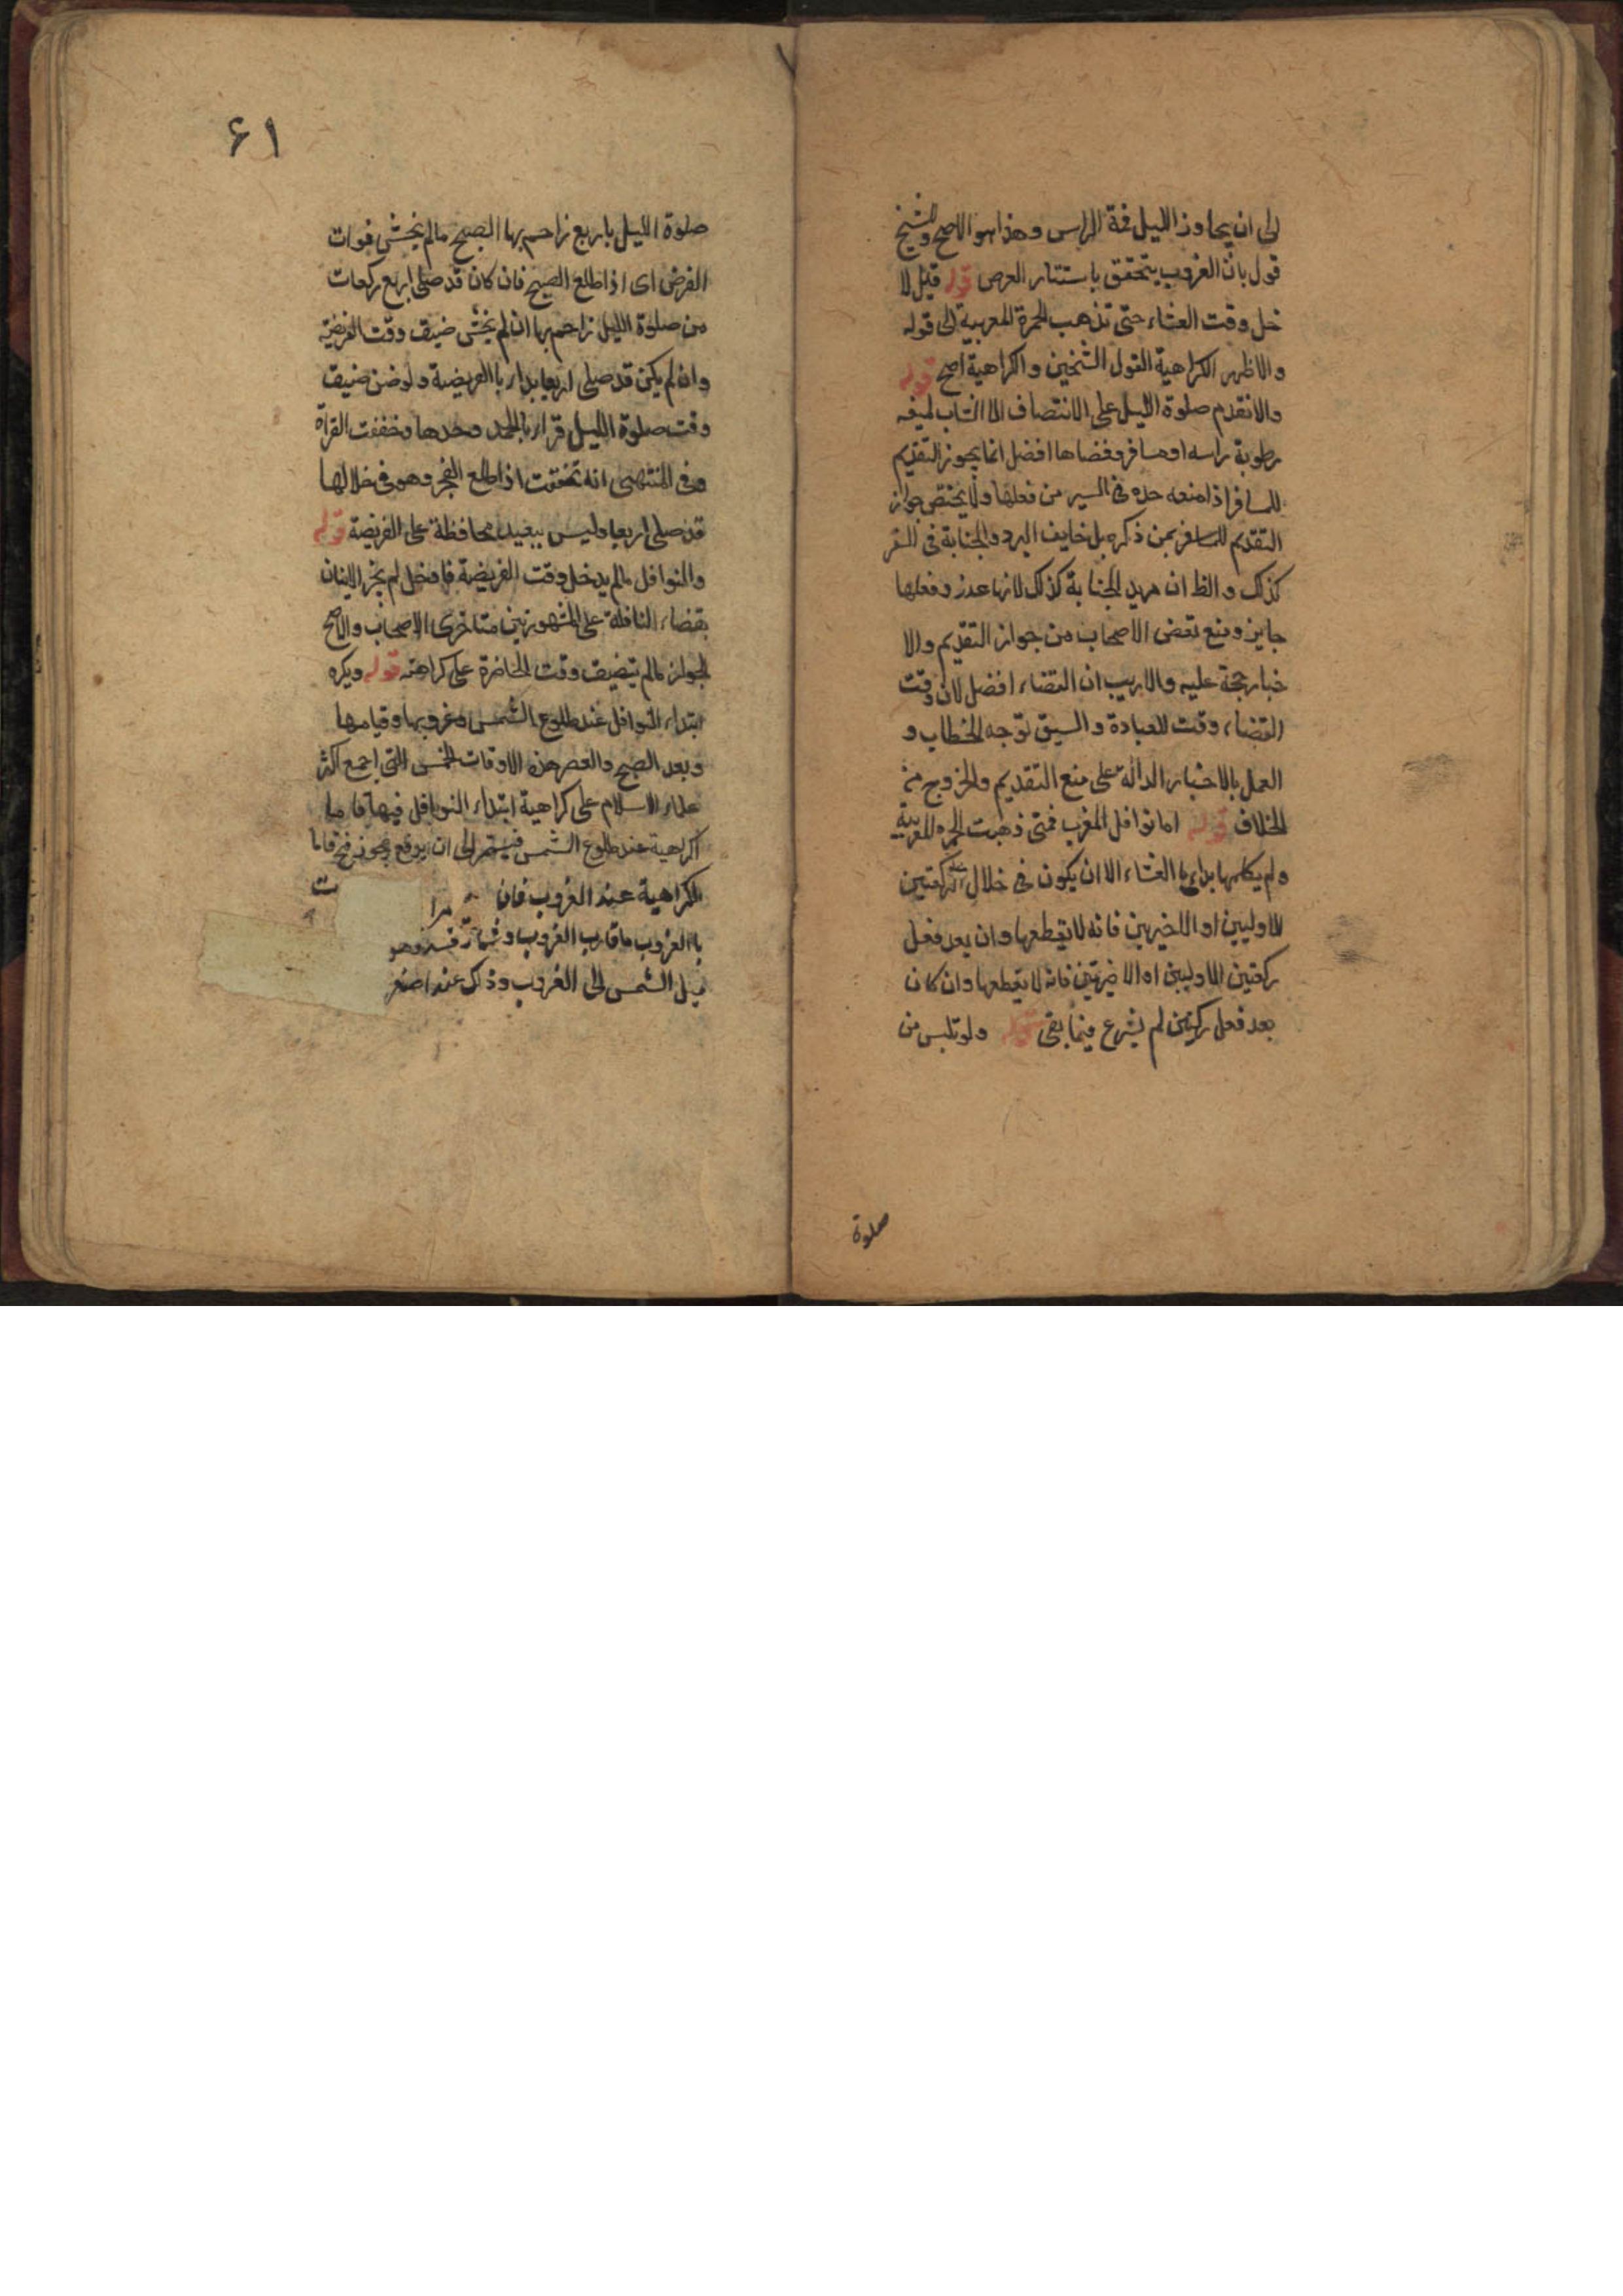 الى ان يحاوز الليل قمة الراس وهذا هو الاصح وللشيخ
قول بان الغروب يتحقق باستتار العرص قوله قيل لا
خل وقت العشاء حتى تذهب الحمرة المعربية الى قوله
والاظهر الكراهية القول الشيخين والكراهية اصح قوله
والانقدم صلوة الليل على الانتصاف الا الشاب ليفه
رطوبة راسه او مسافر وفضاها افضل انما يجوز التقديم
للمسافر اذا منعه جده في السير من فعلها ولا يختص جواز
التقديم للمسافر بمن ذكره بل خايف البرد والجنابة في السفر
كذلك والظ ان مريد الجنابة كذلك لانها عذر وفعلها
جايز ومنع بعض الاصحاب من جواز التقديم والا
خبار حجة عليه والاريب ان القضاء افضل لان وقت
القضاء وقت للعبادة والسبق توجه الخطاب و
العمل بالاخبار الدالة على منع التقديم والخروج من
الخلاف قوله اما نوافل المغرب فمتى ذهبت الحمره المغربية
ولم يكلمها بداء با العشاء الا ان يكون في خلال الركعتين
الاوليين او الاخيرين فانه لا يقطعها وان بعد فعل
ركعتين الاوليين او الاخيرتين فانه لا يقطعها وان كان
بعد فعل ركعتين لم يشرع فيما بقى قوله ولو تلبس من
صلوة
۶۱
صلوة الليل باربع زاحم بها الصبح مالم يخش فوات
الفرض اى اذا طلع الصبح فان كان قد صلى اربع ركعات
من صلوة الليل زاحم بها ان لم يخش ضيق وقت الفريضة
وان لم يكن قد صلى اربعا بداء با الفريضة ولو ضن ضيق
وقت صلوة الليل قراء بالحمد وحدها وخففت القراة
وفى المنتهى انه تخففت اذا طلع الفجر وهو فى خلالها
قد صلى اربعا وليس ببعيد محافظة على الفريضة قوله
والنوافل مالم يدخل وقت الفريضة فا دخل لم يجز الاتيان
بقضاء النافلة على المشهور بين متاخرى الاصحاب والاصح
الجواز مالم تيضيق وقت الحاضرة على كراهته قوله ويكره
ابتداء النوافل عند طلوع الشمس وغروبها وقيامها
وبعد الصبح والعصر هذه الاوقات الخمس التى اجمع اكثر
علماء الاسلام على كراهية ابتداء النوافل فيها فاما
اكراهية عند طلوع الشمس فيستمر الى ان يرتفع
الكراهية عند الغروب فان
با الغروب ما قارب الغروب وهو
ميل الشمس الى الغروب وذلك عند اصفر